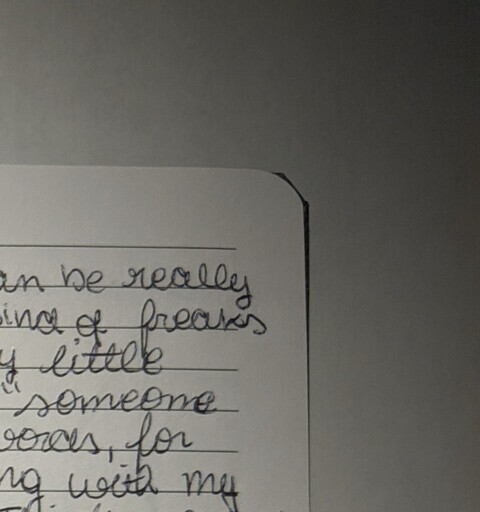 an be really
ind of freaks
y little
" someone
words, for
ng with my